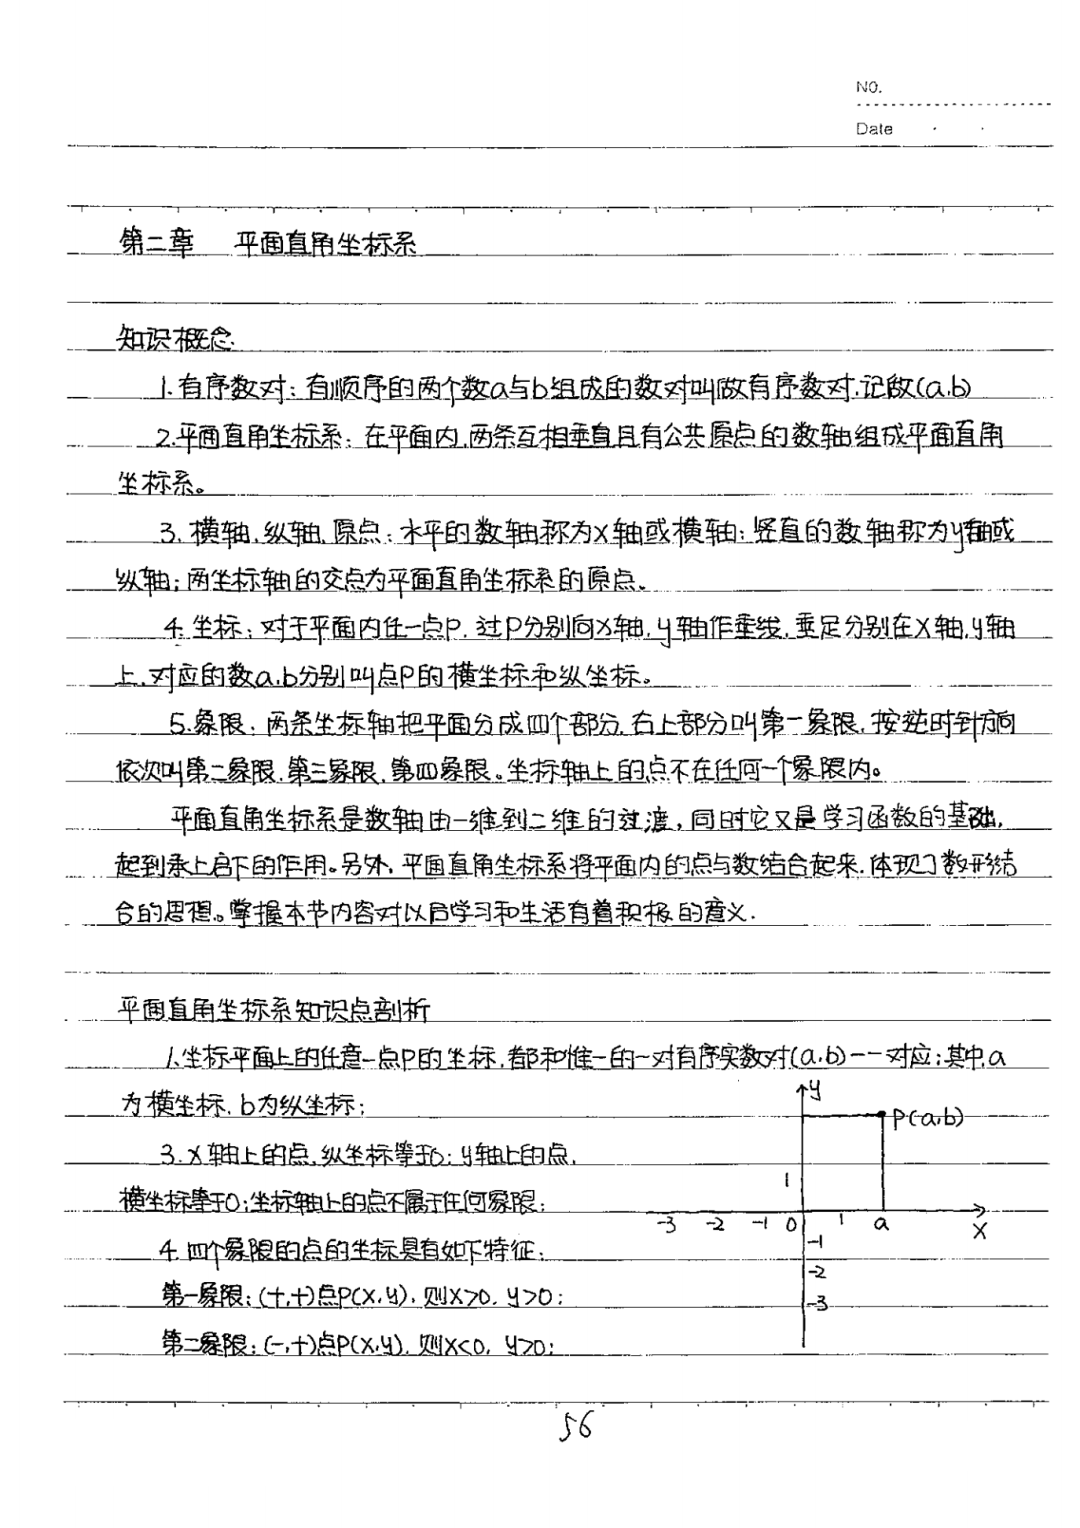 NO.
Date
第二章 平面直角坐标系
知识概念.
1.有序数对:有顺序的两个数a与b组成的数对叫做有序数对.记做(a.b)
2.平面直角坐标系:在平面内.两条互相垂直且有公共原点的数轴组成平面直角
坐标系。
3.横轴.纵轴.原点:水平的数轴称为X轴或横轴;竖直的数轴称为y轴或
纵轴;两坐标轴的交点为平面直角坐标系的原点.
4.坐标:对于平面内任一点P.过P分别向X轴.y轴作垂线.垂足分别在X轴.y轴
上.对应的数a.b分别叫点P的横坐标和纵坐标。
5.象限:两条坐标轴把平面分成四个部分.右上部分叫第一象限.按逆时针方向
依次叫第二象限.第三象限.第四象限。坐标轴上的点不在任何一个象限内。
平面直角坐标系是数轴由一维到二维的过渡,同时它又是学习函数的基础.
起到承上启下的作用。另外.平面直角坐标系将平面内的点与数结合起来.体现了数形结
合的思想。掌握本节内容对以后学习和生活有着积极的意义.
平面直角坐标系知识点剖析
1.坐标平面上的任意一点P的坐标.都和惟一的一对有序实数对(a.b)一一对应;其中a
为横坐标.b为纵坐标;
y
P(a.b)
3.X轴上的点.纵坐标等于0;y轴上的点.
1
横坐标等于0;坐标轴上的点不属于任何象限;
-3 -2 -1 0 1 a X
-1
4.四个象限的点的坐标具有如下特征:
-2
第一象限:(+.+)点P(X.y).则X>0.y>0;
-3
第二象限:(-.+)点P(X.y).则X<0.y>0;
56